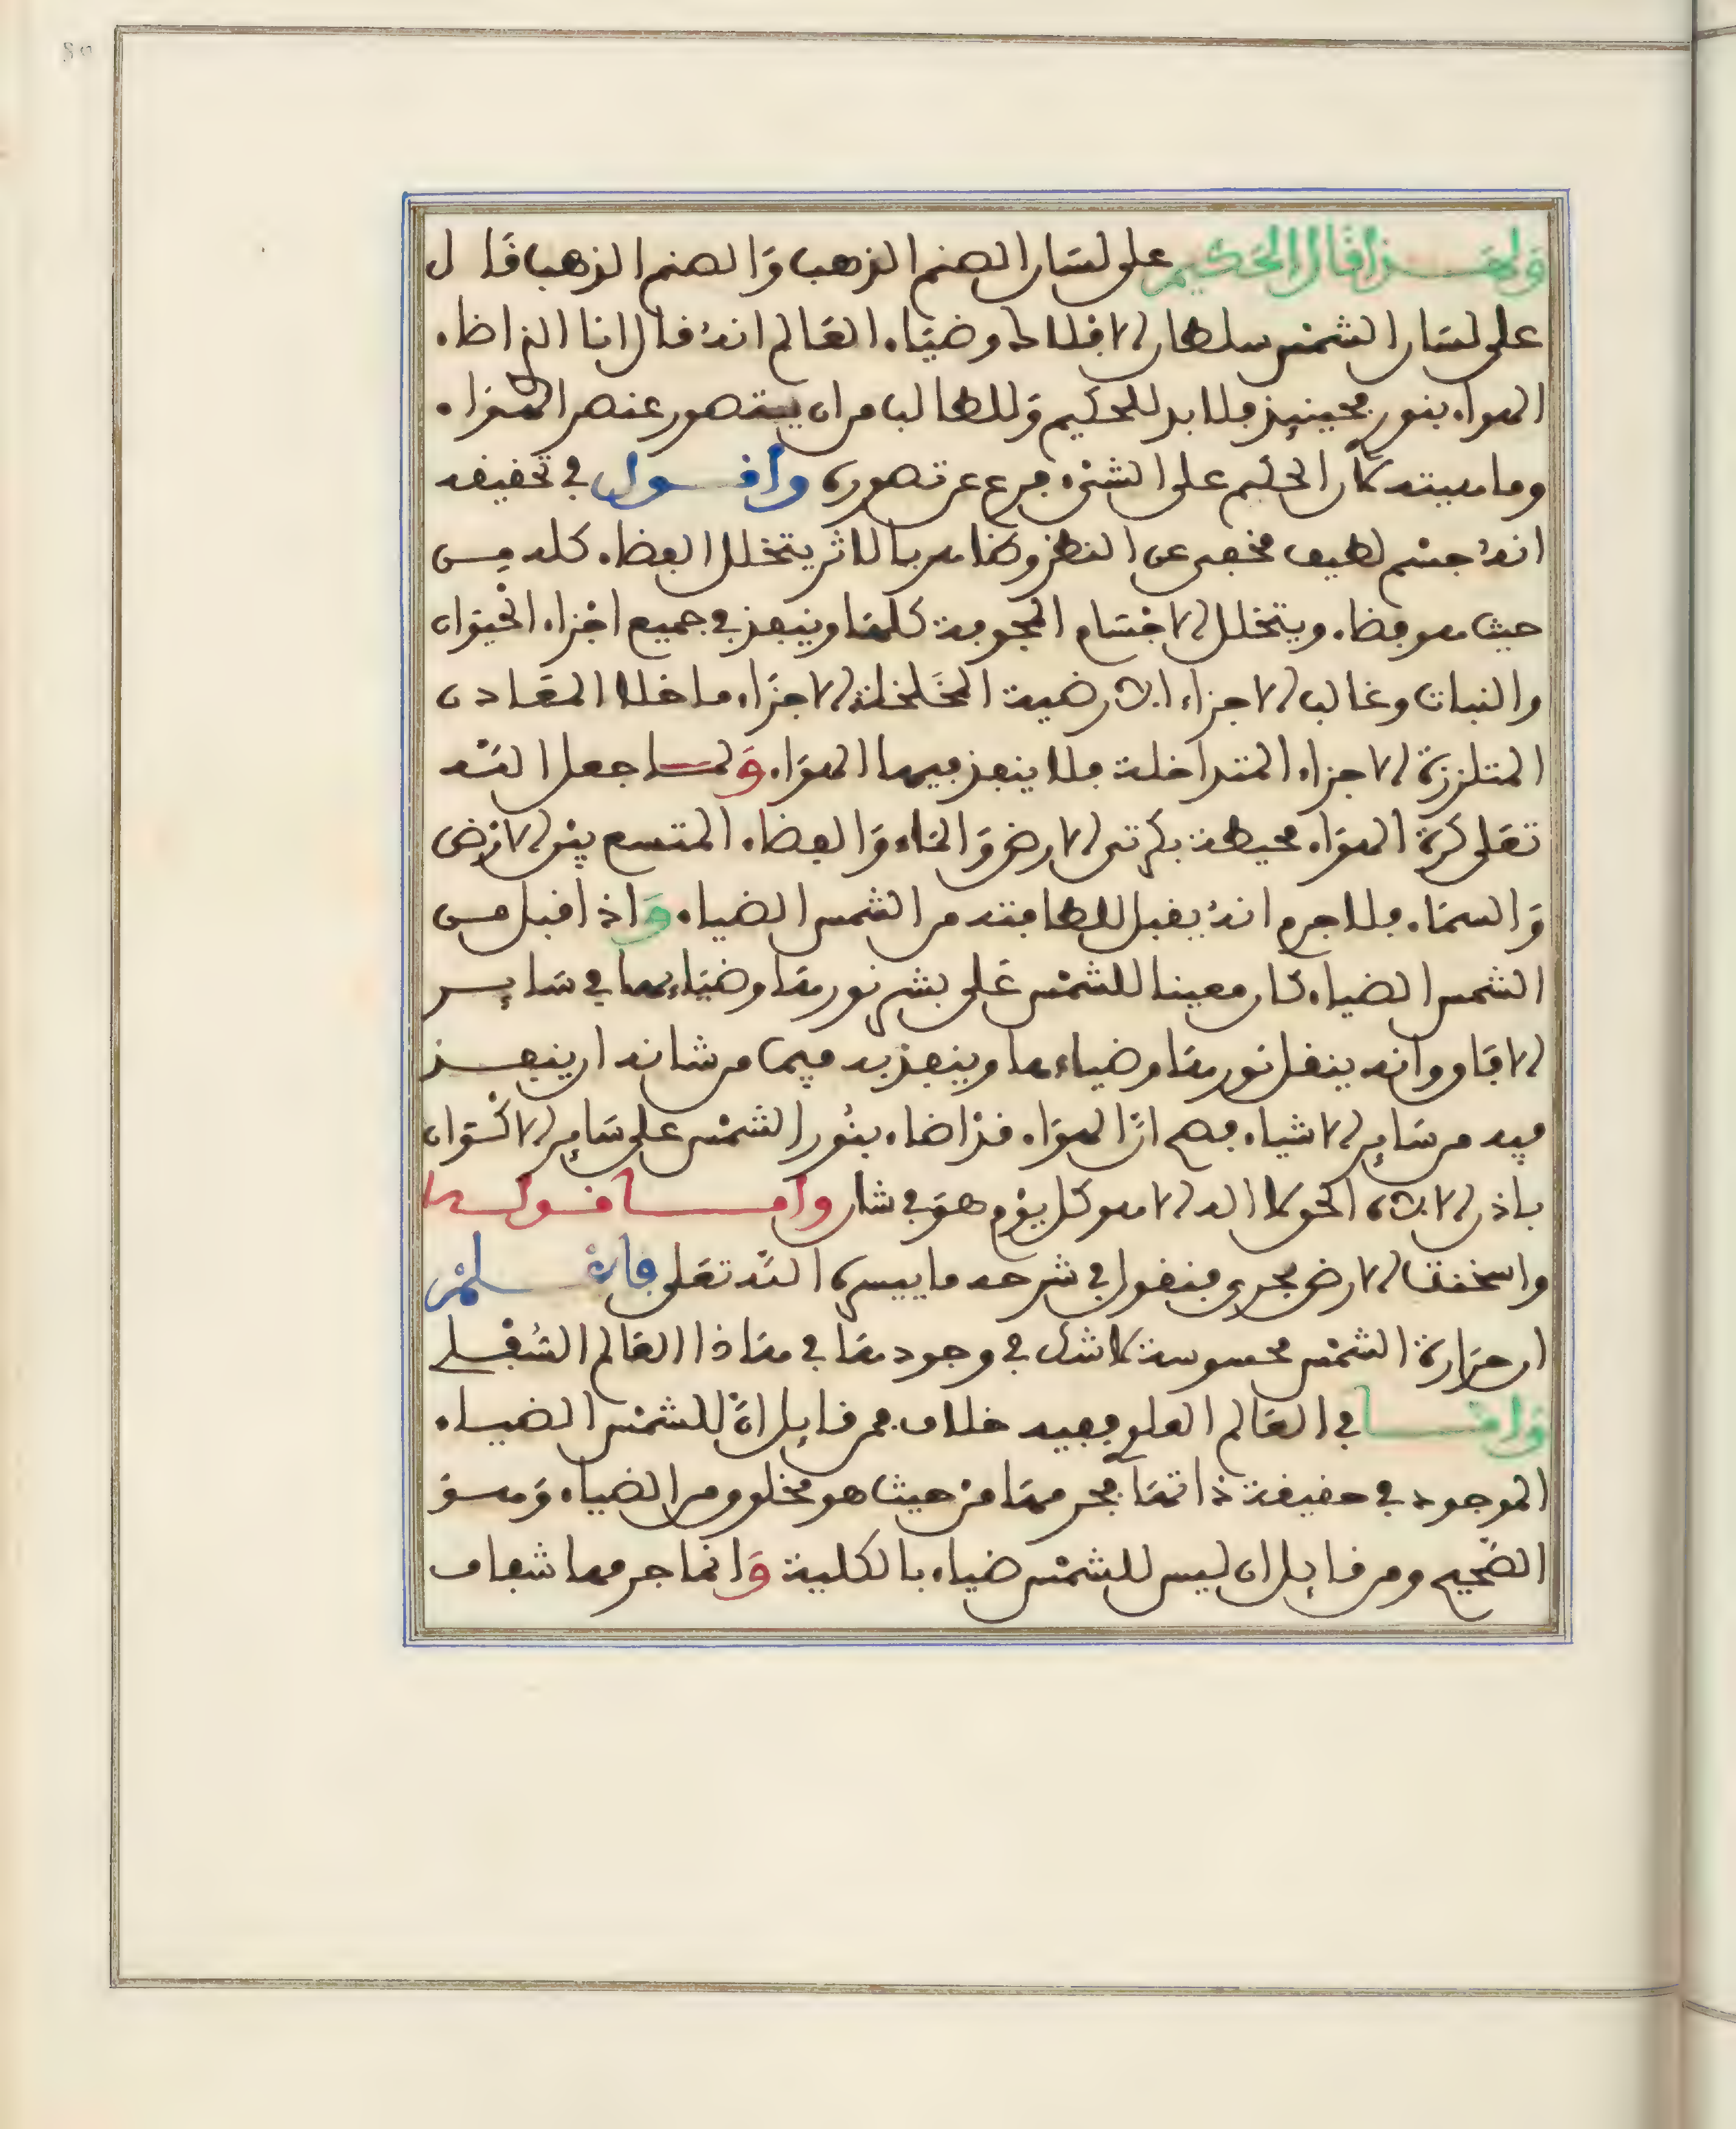 ولهذا قال الحكيم على لسان الصنم الذهب والصنم الذهب قال
على لسان الشمس سلطان الافلاك وضياء العالم انه قال انا الذ اضاء
الهواء بنور فحينيذ فلا بد للحكيم وللطالب من ان يتصور عنصر الهواء
وماهيته لان الحكم على الشيء فرع عن تصوره واقول في تحقيقه
انه جسم لطيف مخفي عن النظر وظاهر بالاثر يتخلل الفضاء كله من
حيث هو فضاء ويتخلل الاجسام المجوفة كلها وينفذ في جميع اجزاء الحيوان
والنبات وغالب الاجزاء الارضية المخلخلة الاجزاء ما خلا المعادن
المتلززة الاجزاء المتداخلة فلا ينفذ فيها الهواء ولما جعل الله
تعلى كرة الهواء محيطة بكرتي الارض والماء والفضاء المتسع بين الارض
والسماء فلا جرم انه يقبل للطافته من الشمس الضياء واذا قبل من
الشمس الضياء كان معينا للشمس على بشر نورها وضياءها في ساير
الافاق وانه ينقل نورها وضياءها وينفذ به فيما من شانه ان ينفذ
فيه من ساير الاشياء فصح ان الهواء قد اضاء بنور الشمس على ساير الاكوان
باذن الاله الحق لا اله الا هو كل يوم هو في شان واما قولها
واسخنت الارض بحري فنقول في شرحه ما ييسره الله تعلى فاعلم
ان حرارة الشمس محسوسة لا شك في وجودها في هاذا العالم السفلي
واما في العالم العلوي ففيه خلاف فمن قايل ان للشمس الضياء
الموجود في حقيقة ذاتها فجرمها من حيث هو مخلوق من الضياء وهو
الصحيح ومن قايل ان ليس للشمس ضياء بالكلية وانما جرمها شفاف